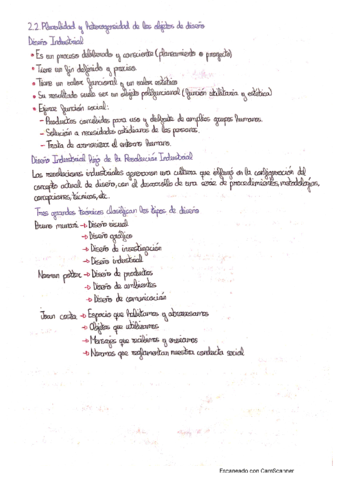 2.2. Pluralidad y heterogeneidad de los objetos de diseño
Diseño Industrial
• Es un proceso deliberado y consciente (planeamiento o proyecto)
• Tiene un fin definido y preciso.
• Tiene un valor funcional y un valor estético
• Su resultado suele ser un objeto polifuncional (función utilitaria y estética)
• Ejerce función social:
– Productos concebidos para uso y disfrute de amplios grupos humanos.
– Solución a necesidades cotidianas de las personas.
– Trata de acomodar el entorno humano.
Diseño Industrial hijo de la Revolución Industrial
Las revoluciones industriales aportaron una cultura que influyó en la configuración del
concepto actual de diseño, con el desarrollo de una serie de procedimientos, metodologías,
concepciones, técnicas, etc.
Tres grandes teóricos clasifican los tipos de diseño
Bruno munari → Diseño visual
→ Diseño gráfico
→ Diseño de investigación
→ Diseño industrial
Norman potter → Diseño de productos
→ Diseño de ambientes
→ Diseño de comunicación
Joan costa → Espacio que habitamos y atravesamos
→ Objetos que utilizamos
→ Mensajes que recibimos y enviamos
→ Normas que reglamentan nuestra conducta social
Escaneado con CamScanner